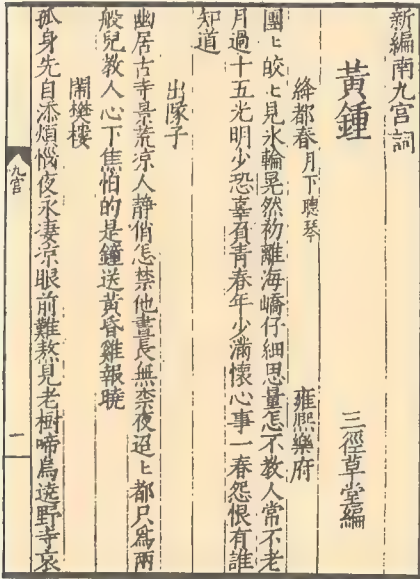 新編南九宮詞
黃鍾　三徑草堂編
絳都春月下聽琴　雍熙樂府
團〻皎〻見氷輪晃然初離海嶠仔細思量怎不教人常不老
月過十五光明少恐辜負青春年少滿懷心事一春怨恨有誰
知道
出隊子
幽居古寺景荒凉人静俏怎禁他晝長無柰夜迢〻都只爲兩
般兒教人心下焦怕的是鐘送黃昏雞報曉
鬧樊樓
孤身先自添煩惱夜永凄凉眼前難熬見老樹啼烏遶野寺哀
九宮　一